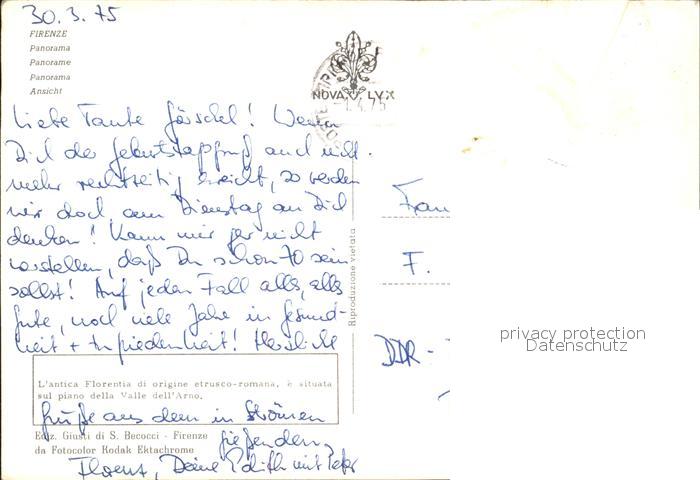 30.3.75
FIRENZE
Panorama
Panorame
Panorama
Ansicht
NOVA LVX
1.4.75
Liebe Tante Görschel! Wenn
Dich der Geburtstagsgruß auch nicht
mehr rechtzeitig erreicht, so werden
wir doch am Dienstag an Dich
denken! Kann mir gar nicht
vorstellen, daß Du schon 70 sein
sollst! Auf jeden Fall alles, alles
Gute, noch viele Jahre in Gesund-
heit + Zufriedenheit! Herzliche
Grüße aus dem in Strömen
gießenden
Florenz, Deine Edith mit Peter
L'antica Florentia di origine etrusco-romana, è situata
sul piano della Valle dell'Arno.
Ediz. Giusti di S. Becocci - Firenze
da Fotocolor Kodak Ektachrome
Riproduzione vietata
Frau
F.
DDR -
privacy protection
Datenschutz